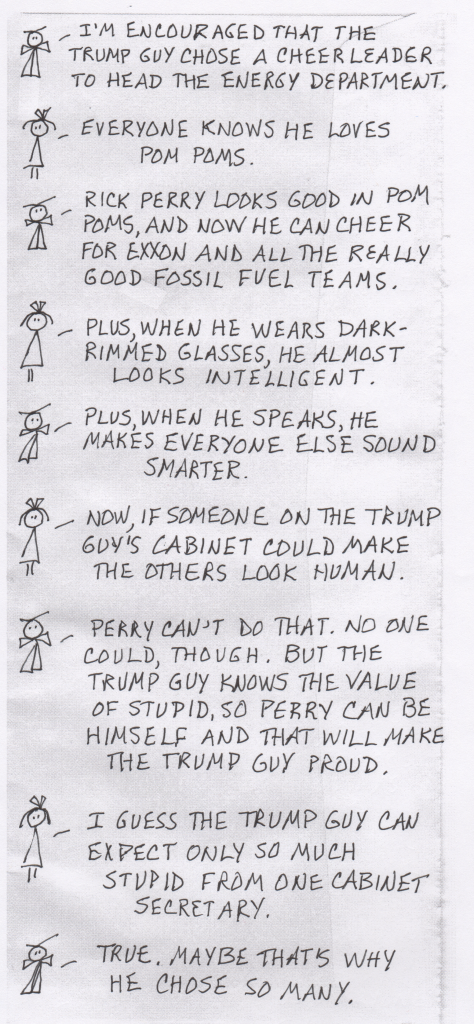 I'M ENCOURAGED THAT THE
TRUMP GUY CHOSE A CHEERLEADER
TO HEAD THE ENERGY DEPARTMENT.
EVERYONE KNOWS HE LOVES
POM POMS.
RICK PERRY LOOKS GOOD IN POM
POMS, AND NOW HE CAN CHEER
FOR EXXON AND ALL THE REALLY
GOOD FOSSIL FUEL TEAMS.
PLUS, WHEN HE WEARS DARK-
RIMMED GLASSES, HE ALMOST
LOOKS INTELLIGENT.
PLUS, WHEN HE SPEAKS, HE
MAKES EVERYONE ELSE SOUND
SMARTER.
NOW, IF SOMEONE ON THE TRUMP
GUY'S CABINET COULD MAKE
THE OTHERS LOOK HUMAN.
PERRY CAN'T DO THAT. NO ONE
COULD, THOUGH. BUT THE
TRUMP GUY KNOWS THE VALUE
OF STUPID, SO PERRY CAN BE
HIMSELF AND THAT WILL MAKE
THE TRUMP GUY PROUD.
I GUESS THE TRUMP GUY CAN
EXPECT ONLY SO MUCH
STUPID FROM ONE CABINET
SECRETARY.
TRUE. MAYBE THAT'S WHY
HE CHOSE SO MANY.